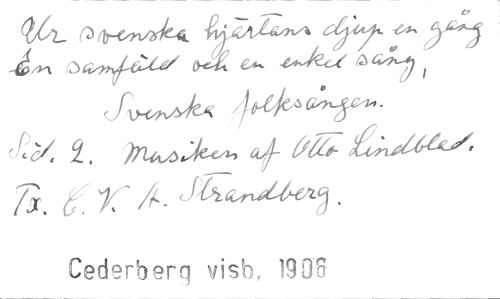 Ur svenska hjärtans djup en gång
En samfäld och en enkel sång,
Svenska folksången.
Sid. 2. Musiken af Otto Lindblad.
Tx. C. V. A. Strandberg.
Cederberg visb, 1906